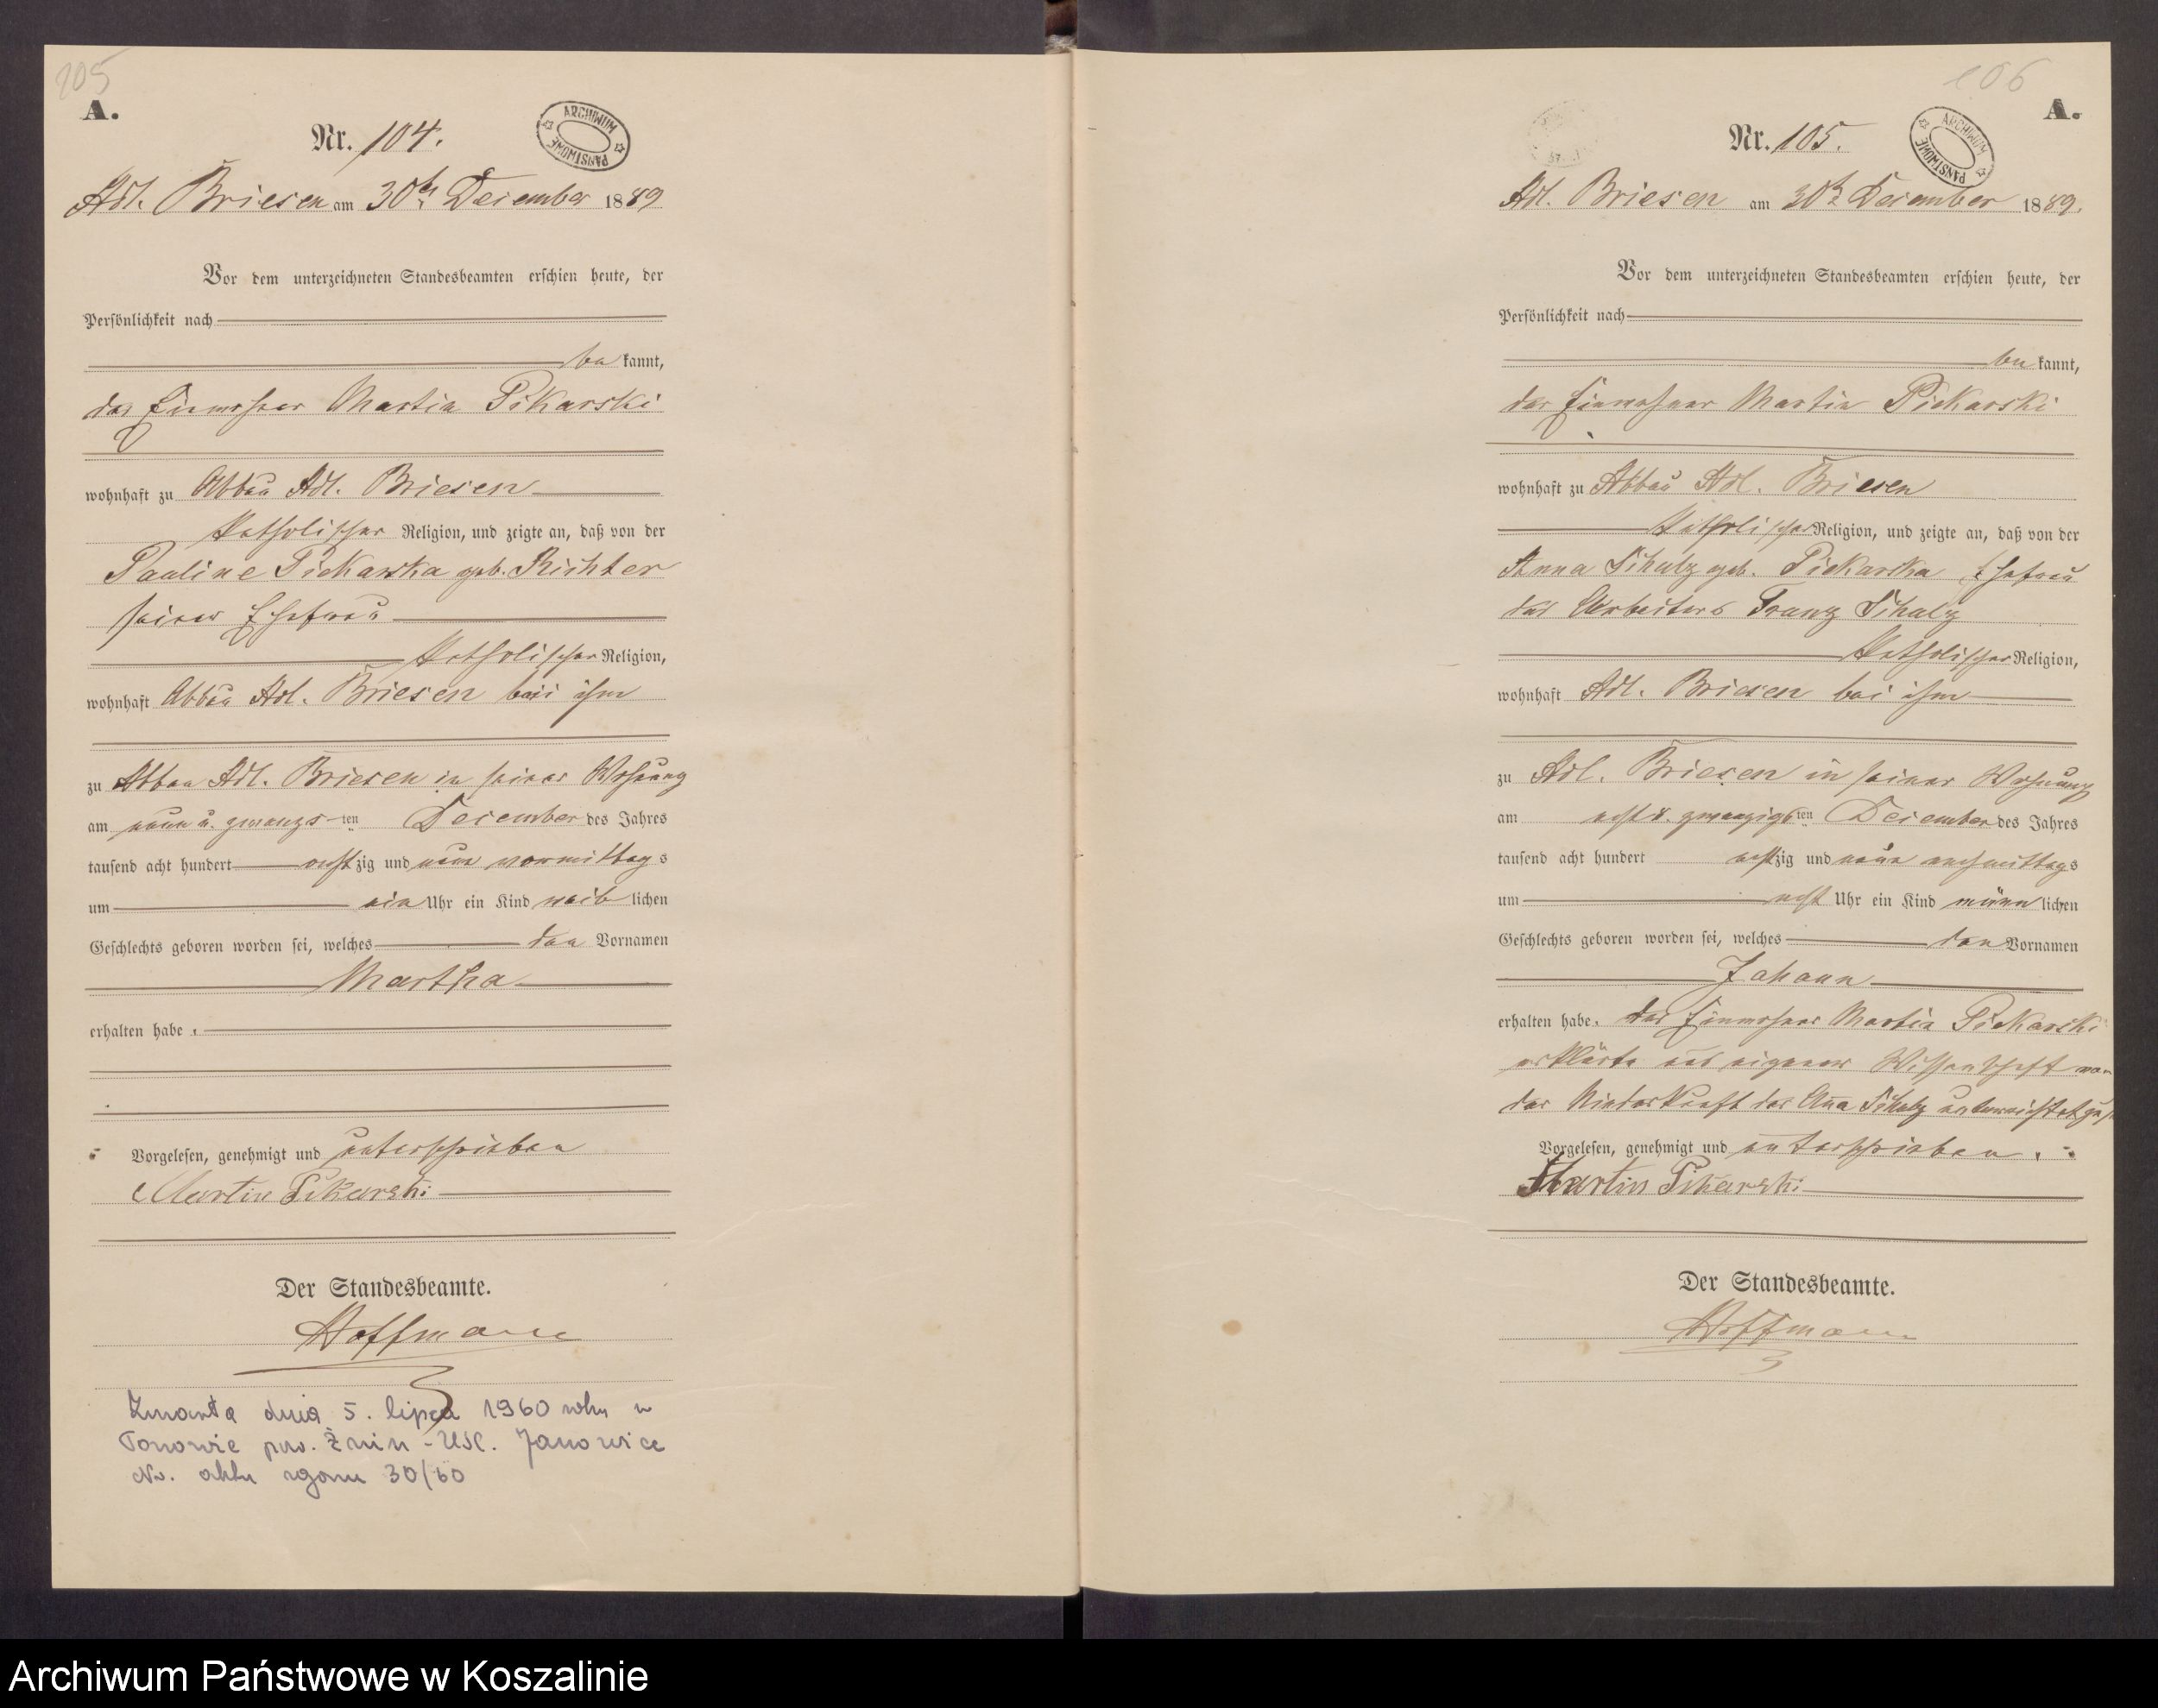 105
A.
Nr. 104.
ARCHIWUM PAŃSTWOWE
Adl. Briesen am 30ten December 1889
Vor dem unterzeichneten Standesbeamten erschien heute, der
Persönlichkeit nach
bekannt,
der Einwohner Martin Pikarski
wohnhaft zu Abbau Adl. Briesen
katholischer Religion, und zeigte an, daß von der
Pauline Piekarska geb. Richter
seiner Ehefrau
katholischer Religion,
wohnhaft Abbau Adl. Briesen bei ihm
zu Abbau Adl. Briesen in seiner Wohnung
am neun u. zwanzigsten December des Jahres
tausend acht hundert achtzig und neun vormittags
um ein Uhr ein Kind weiblichen
Geschlechts geboren worden sei, welches den Vornamen
Martha
erhalten habe.
Vorgelesen, genehmigt und unterschrieben
Martin Pikarski
Der Standesbeamte.
Hoffmann
Zmarła dnia 5. lipca 1960 roku w
Tonowie pow. Żnin - USC. Janowice
Nr. aktu zgonu 30/60
106
A.
Nr. 105.
ARCHIWUM PAŃSTWOWE
Adl. Briesen am 30ten December 1889.
Vor dem unterzeichneten Standesbeamten erschien heute, der
Persönlichkeit nach
bekannt,
der Einwohner Martin Piekarski
wohnhaft zu Abbau Adl. Briesen
katholischer Religion, und zeigte an, daß von der
Anna Schulz geb. Piekarska Ehefrau
des Arbeiters Franz Schulz
katholischer Religion,
wohnhaft Adl. Briesen bei ihm
zu Adl. Briesen in seiner Wohnung
am acht u. zwanzigsten December des Jahres
tausend acht hundert achtzig und neun nachmittags
um acht Uhr ein Kind männlichen
Geschlechts geboren worden sei, welches den Vornamen
Johann
erhalten habe. Der Einwohner Martin Piekarski
erklärte aus eigener Wissenschaft von
der Niederkunft der Anna Schulz unterrichtet zu
Vorgelesen, genehmigt und unterschrieben.
Martin Pikarski
Der Standesbeamte.
Hoffmann
Archiwum Państwowe w Koszalinie